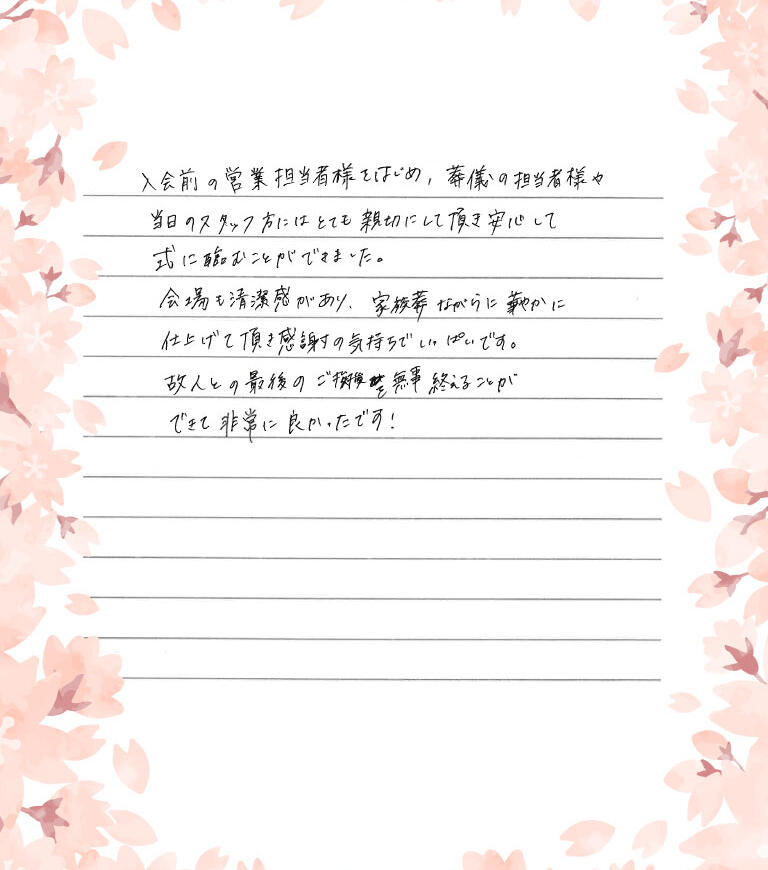 入会前の営業担当者様をはじめ、葬儀の担当者様や
当日のスタッフ方にはとても親切にして頂き安心して
式に臨むことができました。
会場も清潔感があり、家族葬ながらに華やかに
仕上げて頂き感謝の気持ちでいっぱいです。
故人との最後のご挨拶を無事終えることが
できて非常に良かったです!